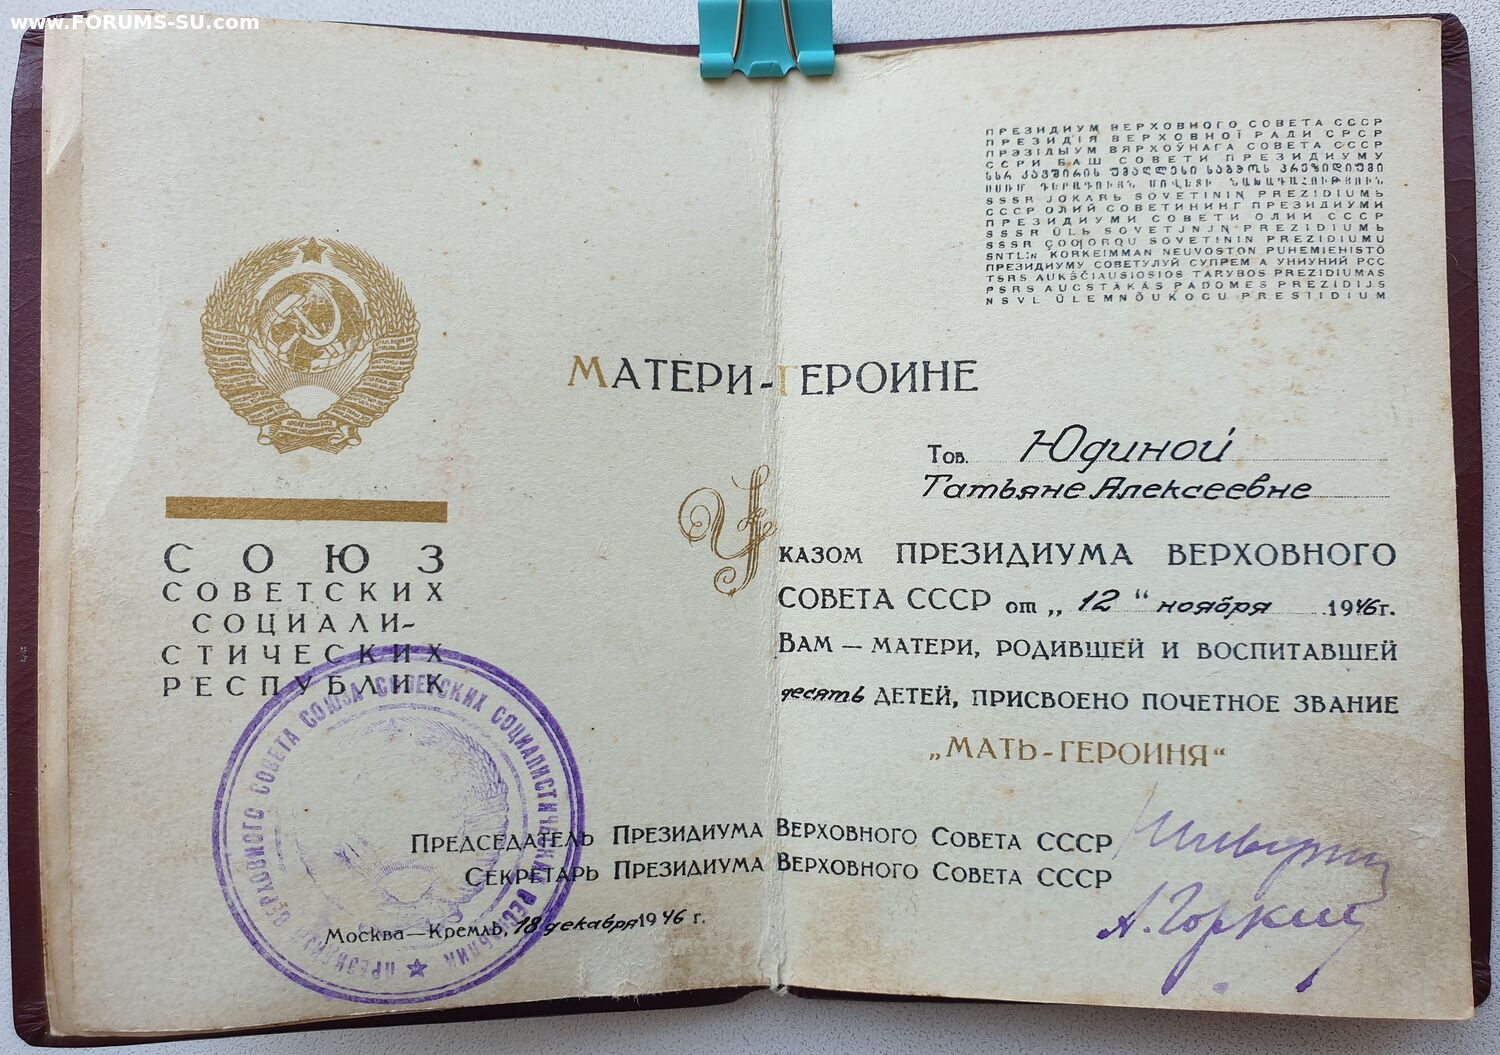 www.FORUMS-SU.com
СОЮЗ
СОВЕТСКИХ
СОЦИАЛИ-
СТИЧЕСКИХ
РЕСПУБЛИК
ПРЕЗИДИУМ ВЕРХОВНОГО СОВЕТА СССР
ПРЕЗИДІЯ ВЕРХОВНОЇ РАДИ СРСР
ПРЭЗІДЫУМ ВЯРХОЎНАГА СОВЕТА СССР
ССРИ БАШ СОВЕТИ ПРЕЗИДИУМУ
სსრ კავშირის უმაღლესი საბჭოს პრეზიდიუმი
SSSR JOKARЬ SOVETININ PREZIDIUMЬ
СССР ОЛИЙ СОВЕТИНИНГ ПРЕЗИДИУМИ
ПРЕЗИДИУМИ СОВЕТИ ОЛИИ СССР
SSSR SOVETJNJN PREZIDIUMЬ
SSSR SOVETININ PREZIDIUMU
SNTL:n KORKEIMMAN NEUVOSTON PUHEMIEHISTÖ
ПРЕЗИДИУМУ СОВЕТУЛУЙ СУПРЕМ А УНИУНИЙ РСС
TSRS AUKŠČIAUSIOSIOS TARYBOS PREZIDIUMAS
PSRS AUGSTĀKĀS PADOMES PREZIDIJS
NSVL ÜLEMNÕUKOGU PRESIIDIUM
МАТЕРИ-ГЕРОИНЕ
Тов. Юдиной
Татьяне Алексеевне
УКАЗОМ ПРЕЗИДИУМА ВЕРХОВНОГО
СОВЕТА СССР от „12“ ноября 1946г.
ВАМ — МАТЕРИ, РОДИВШЕЙ И ВОСПИТАВШЕЙ
десять ДЕТЕЙ, ПРИСВОЕНО ПОЧЕТНОЕ ЗВАНИЕ
„МАТЬ-ГЕРОИНЯ“
ПРЕДСЕДАТЕЛЬ ПРЕЗИДИУМА ВЕРХОВНОГО СОВЕТА СССР
СЕКРЕТАРЬ ПРЕЗИДИУМА ВЕРХОВНОГО СОВЕТА СССР
А. Горкин
МОСКВА—КРЕМЛЬ, 18 декабря 1946 г.
ПРЕЗИДИУМ ВЕРХОВНОГО СОВЕТА СОЮЗА СОВЕТСКИХ СОЦИАЛИСТИЧЕСКИХ РЕСПУБЛИК